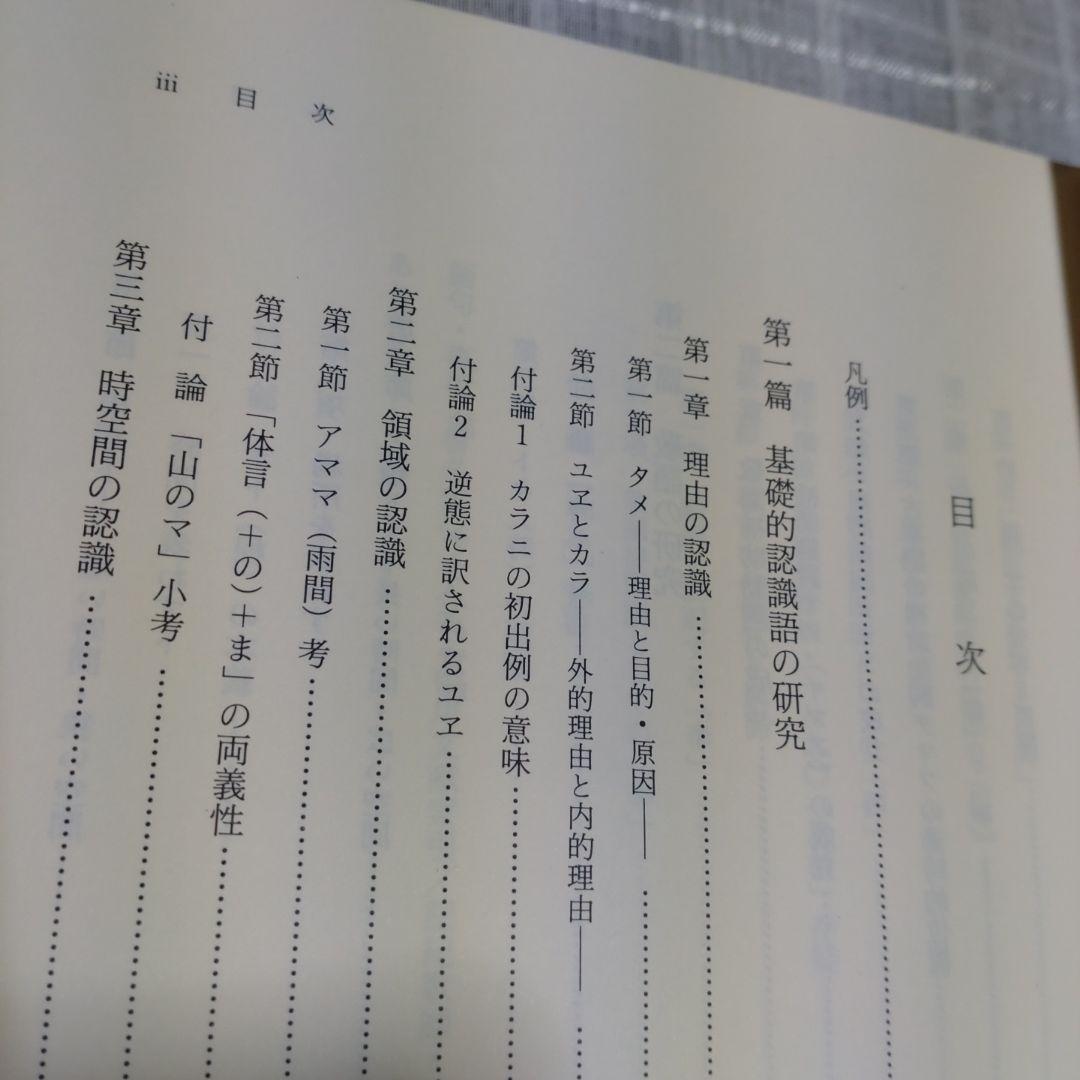 目次
凡例……………………
第一篇　基礎的認識語の研究
第一章　理由の認識……………………
第一節　タメ――理由と目的・原因――……………………
第二節　ユヱとカラ――外的理由と内的理由――……………………
付論1　カラニの初出例の意味……………………
付論2　逆態に訳されるユヱ……………………
第二章　領域の認識……………………
第一節　アママ（雨間）考……………………
第二節　「体言（＋の）＋ま」の両義性……………………
付論　「山のマ」小考……………………
第三章　時空間の認識……………………
iii　目次